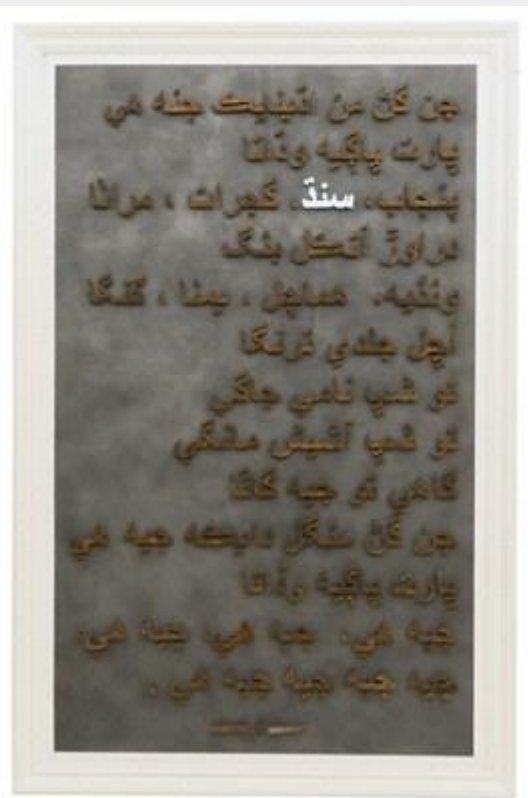 جن گڻ من اڌينايڪ جيه هي
ڀارت ڀاڳيه وڌاتا
پنجاب، سنڌ، گجرات، مراٺا
دراوڙ اُتڪل بنگ
ونڌيه، هماچل، يمنا، گنگا
اُڇل جلدي ترنگا
تو شڀ نامي جاڳي
تو شڀ آشيش مانگي
گاهي تو جيه گاٿا
جن گڻ منگل دايڪه جيه هي
ڀارت ڀاڳيه وڌاتا
جيه هي، جيه هي، جيه هي،
جيه جيه جيه جيه هي.